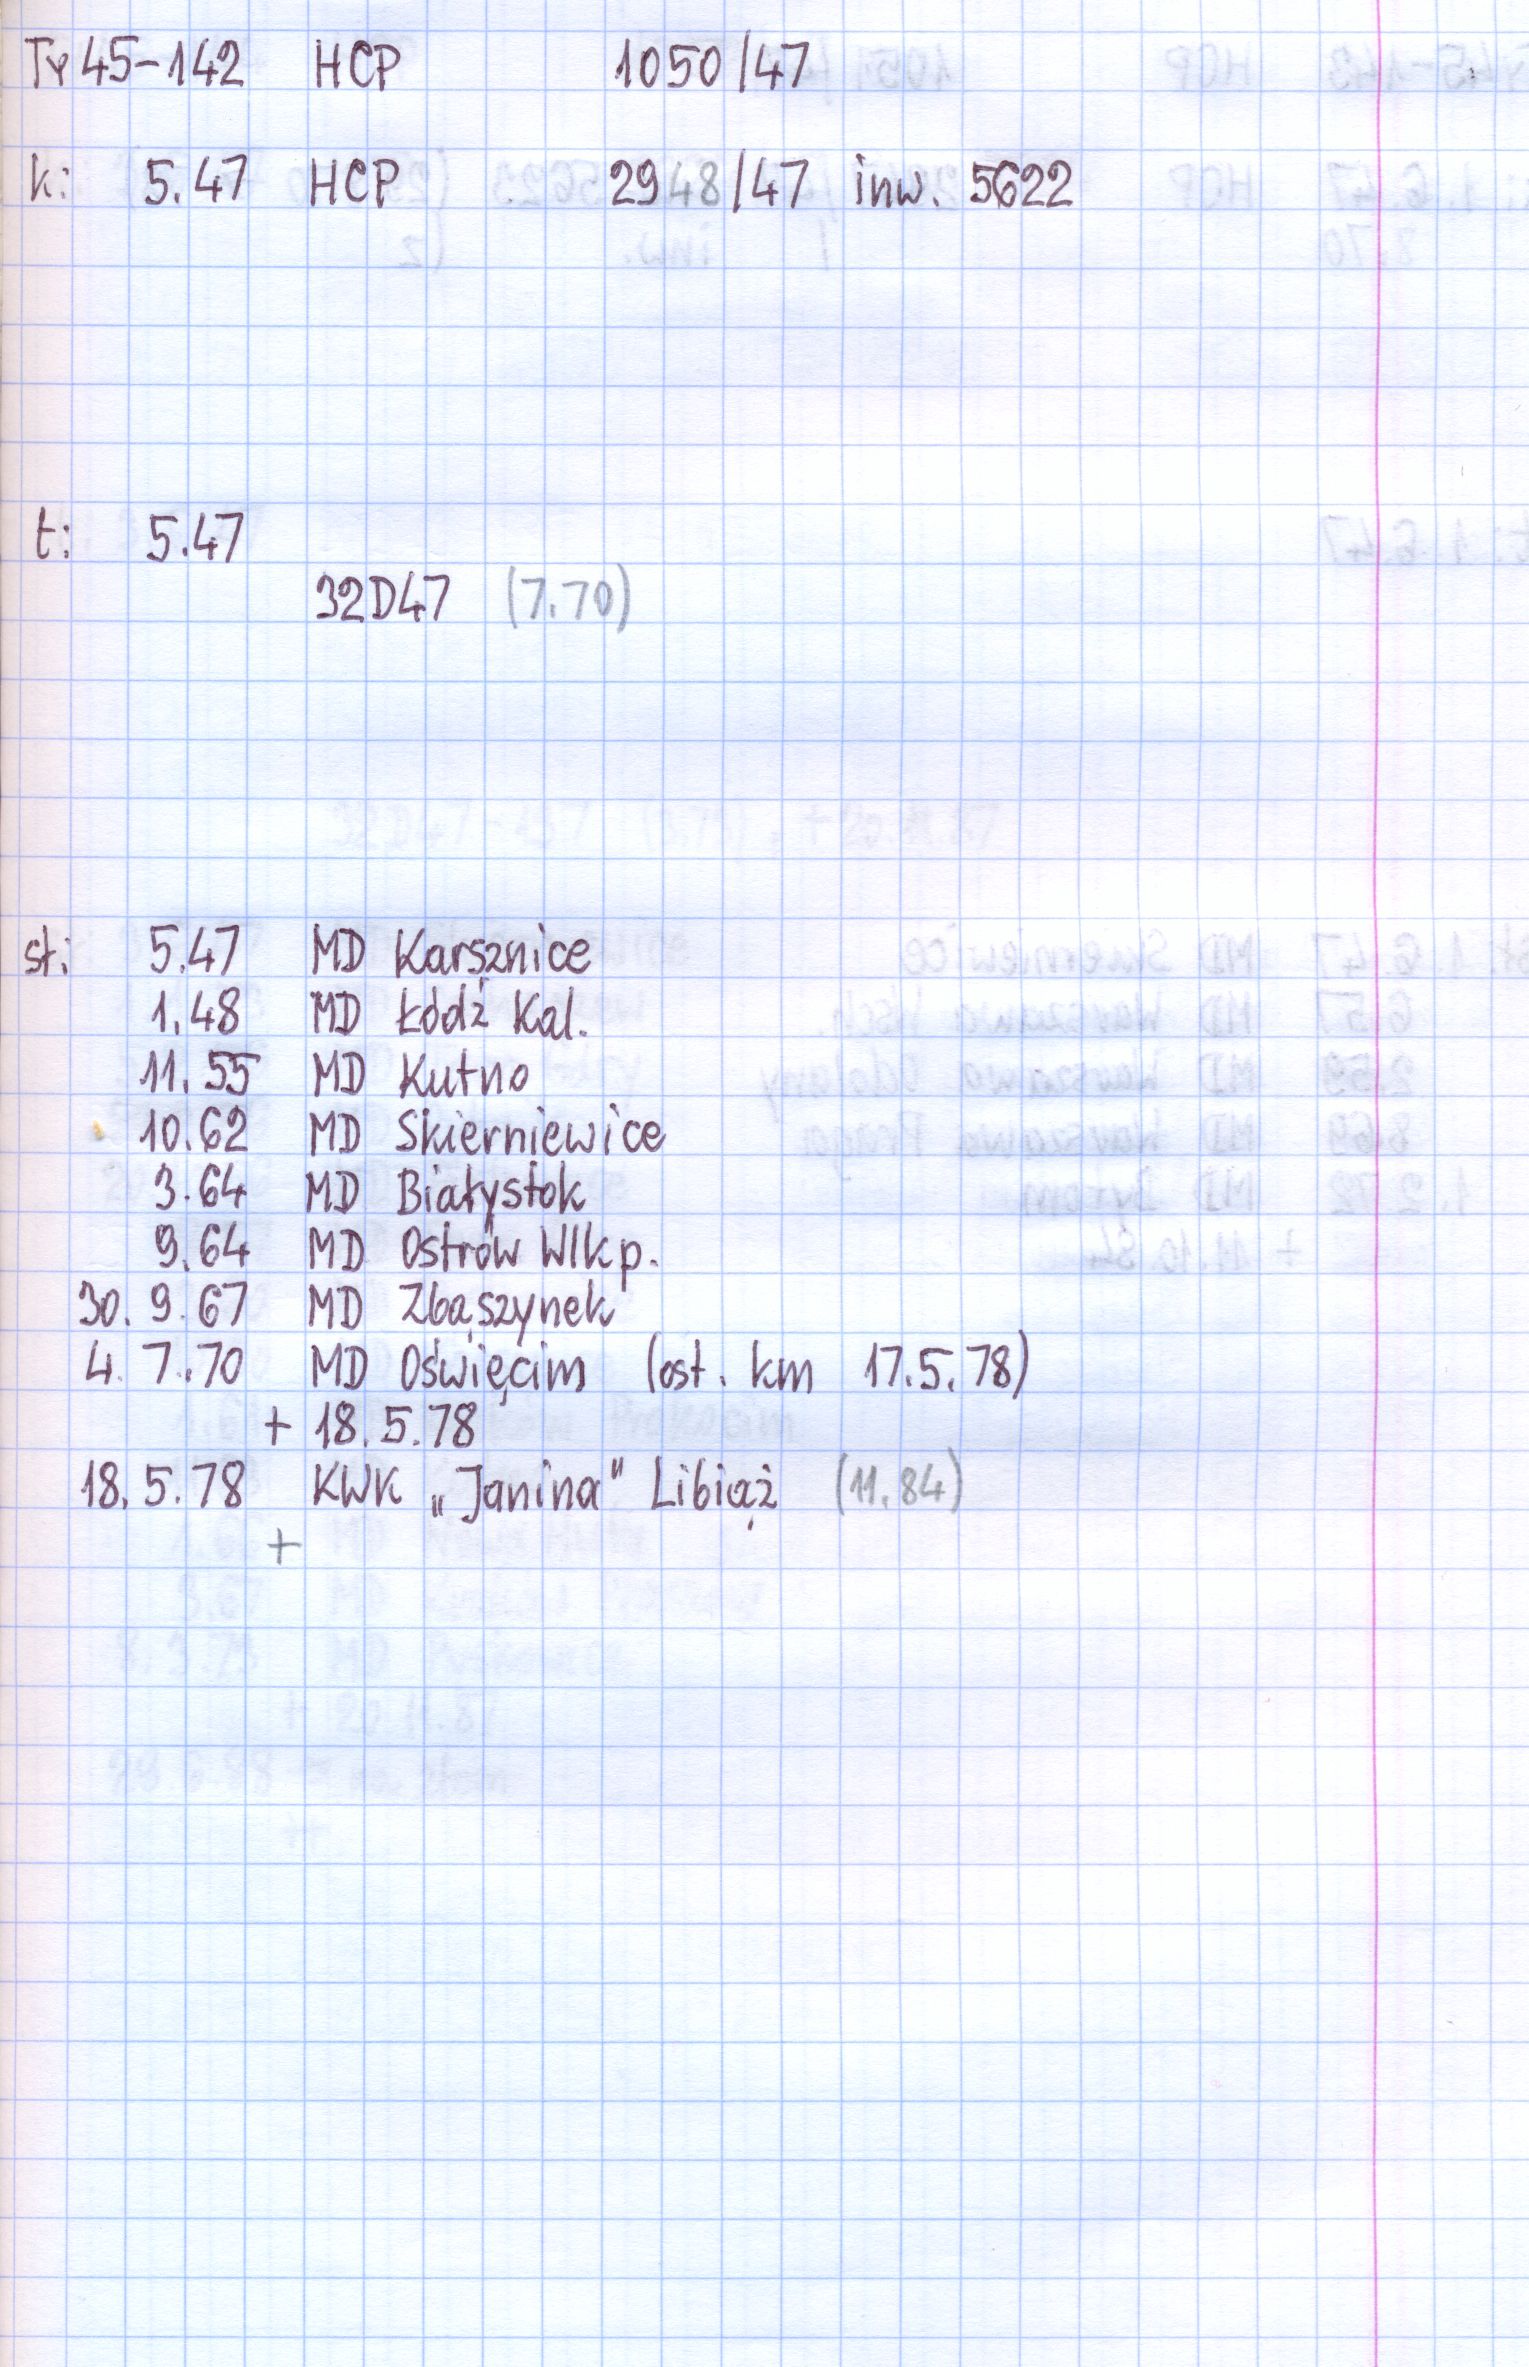 Ty45-142 HCP 1050/47
k: 5.47 HCP 2948/47 inw. 5622
t: 5.47
32D47 (7.70)
st: 5.47 MD Karsznice
1.48 MD Łódź Kal.
11.55 MD Kutno
10.62 MD Skierniewice
3.64 MD Białystok
9.64 MD Ostrów Wlkp.
30.9.67 MD Zbąszynek
4.7.70 MD Oświęcim (ost. km 17.5.78)
+ 18.5.78
18.5.78 KWK „Janina" Libiąż (11.84)
+